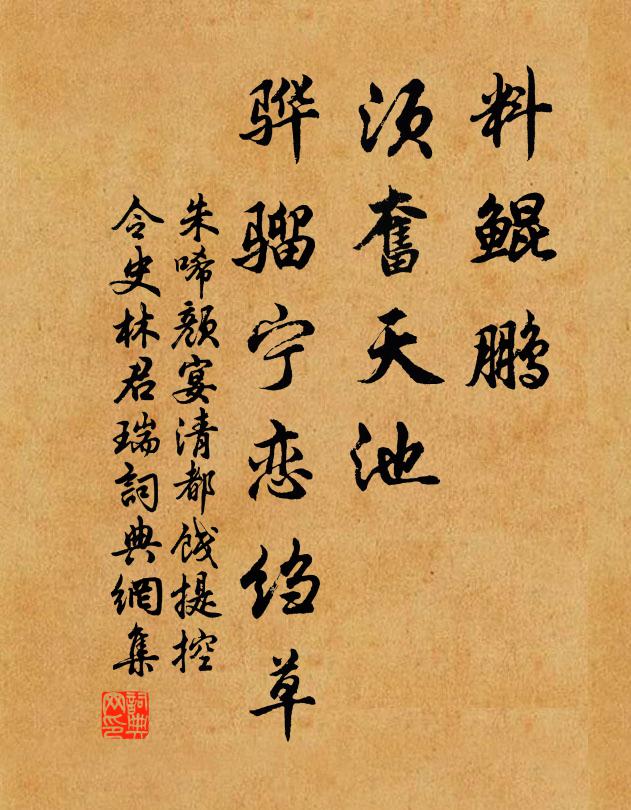 料鲲鹏
须奮天池
骅骝宁恋绉草
朱唏颜宴清都饯提控
令史林君瑞詞典網集
詞典网印